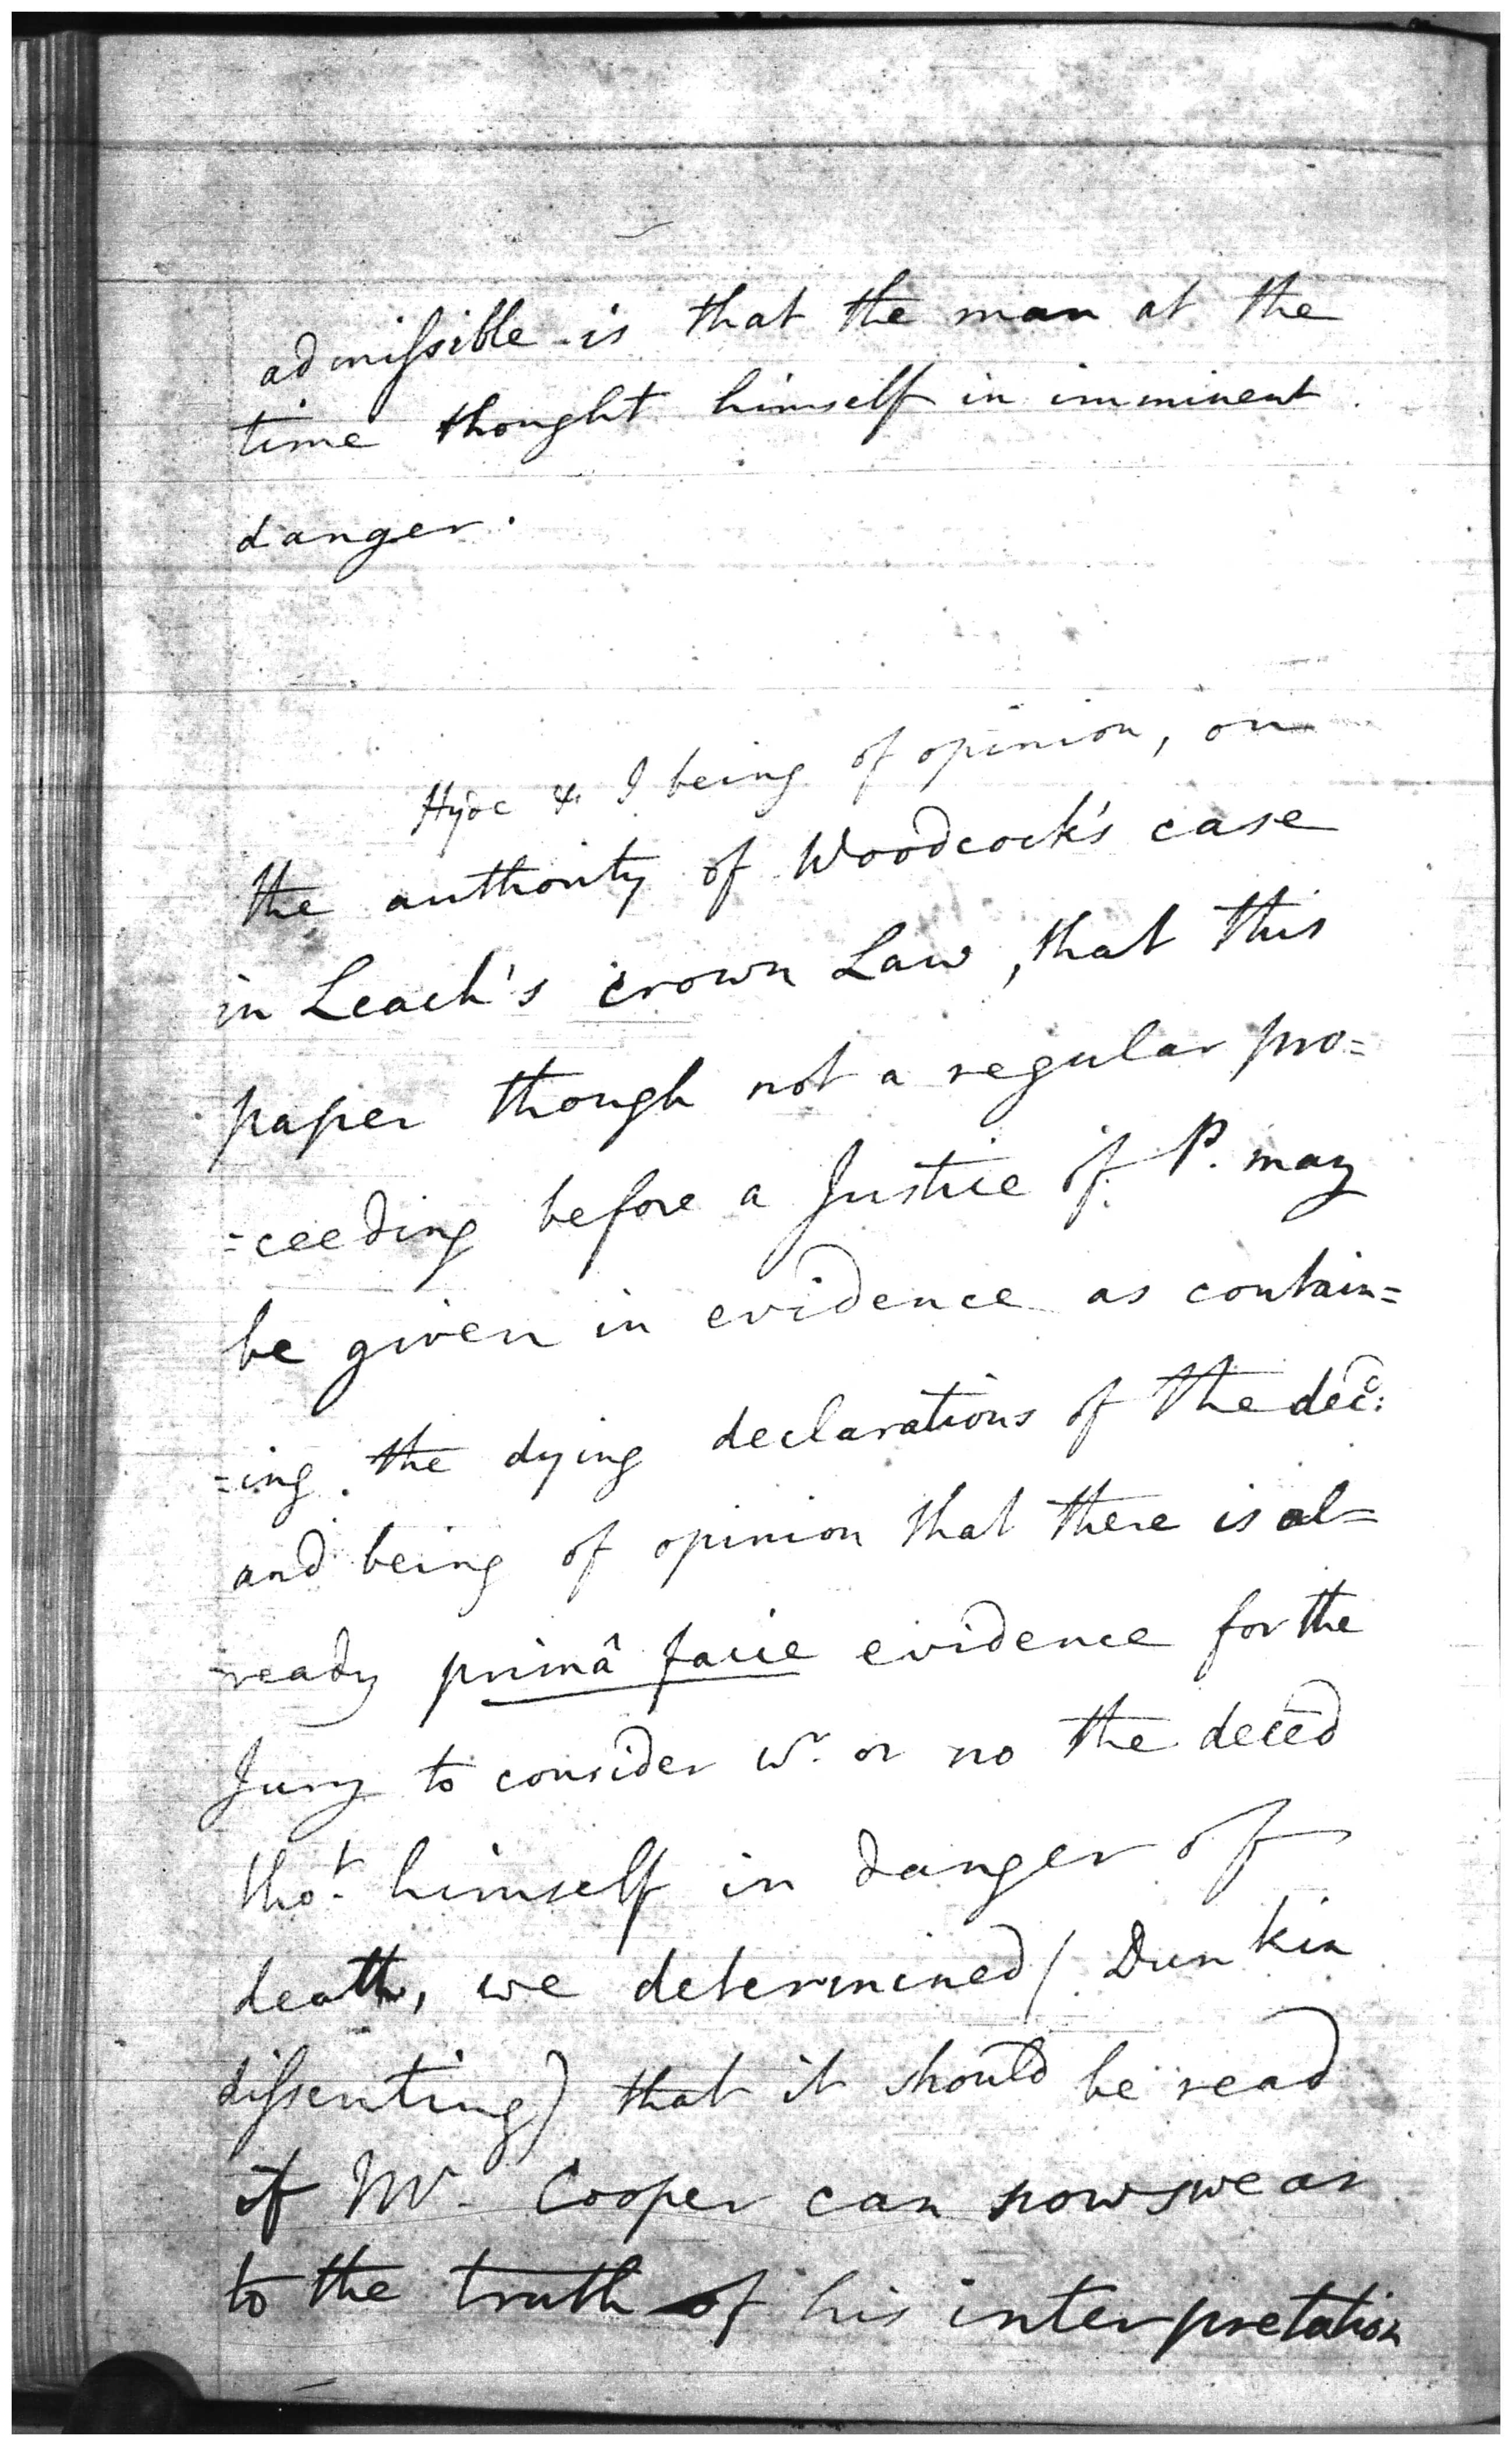 admiſsible is that the man at the
time thought himself in imminent
danger.
Hyde & I being of opinion, on
the authority of Woodcock's case
in Leach's crown Law, that this
paper though not a regular pro=
=ceeding before a Justice of P. may
be given in evidence as contain=
=ing the dying declarations of the decd:
and being of opinion that there is al=
=ready primâ facie evidence for the
Jury to consider wr. or no the deced
thot. himself in danger of
death, we determined (Dunkin
diſsenting) that it should be read
if Mr. Cooper can now swear
to the truth of his interpretation